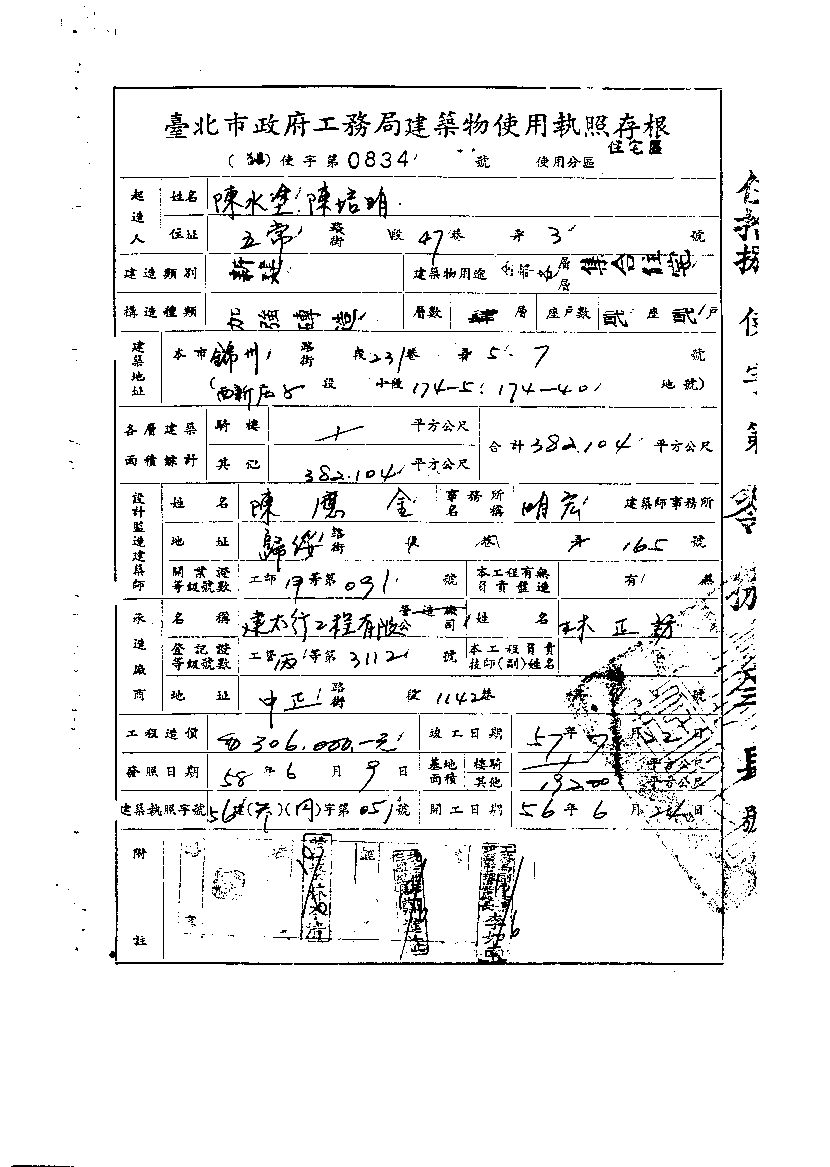 臺北市政府工務局建築物使用執照存根
住宅區
使字第0834號 使用分區
起造人 姓名 陳水塗 陳培明
住址 五常 路街 段 47巷 弄 3 號
建造類別 新建 建築物用途 層層 集合住宅
構造種類 加強磚造 層數 肆層 座戶數 貳座 貳戶
建築地址 本市 錦州 路街 段231巷 弄 5.7 號
(西新庄子 段 小段 174-5 174-40 地號)
各層建築面積總計 騎樓 平方公尺 合計382.104平方公尺
其他 382.104 平方公尺
設計監造建築師 姓名 陳應金 事務所名稱 明宏 建築師事務所
地址 歸綏 路街 段 巷 弄 165 號
開業證等級號數 工師甲等第091號 本工程有無負責監造 有 無
承造廠商 名稱 建太行工程有限公司 營造廠 姓名 林正
登記證等級號數 工營丙等第3112號 本工程負責技師(副)姓名
地址 中正 路街 段 1142巷 號 號
工程造價 306.000.-元 竣工日期 57年7月22日
發照日期 58年6月9日 基地面積 樓騎 平方公尺
其他 192.00 平方公尺
建築執照字號 56建( )( )字第051號 開工日期 56年6月24日
附註
使字第
號